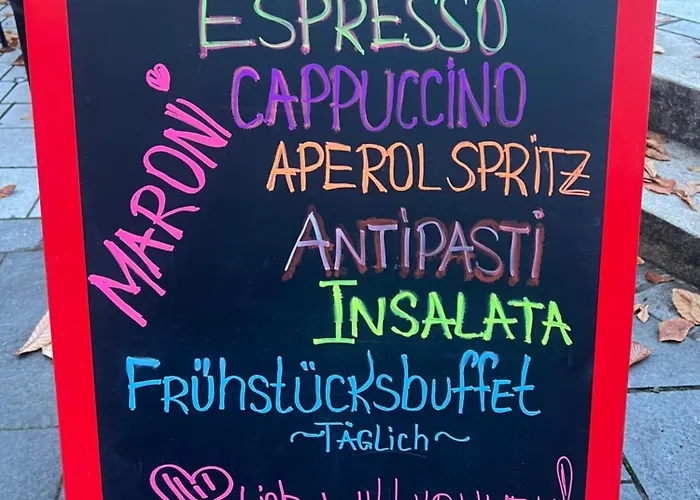 ESPRESSO
CAPPUCCINO
MARONI
APEROL SPRITZ
ANTIPASTI
INSALATA
FRÜHSTÜCKSBUFFET
~TÄGLICH~